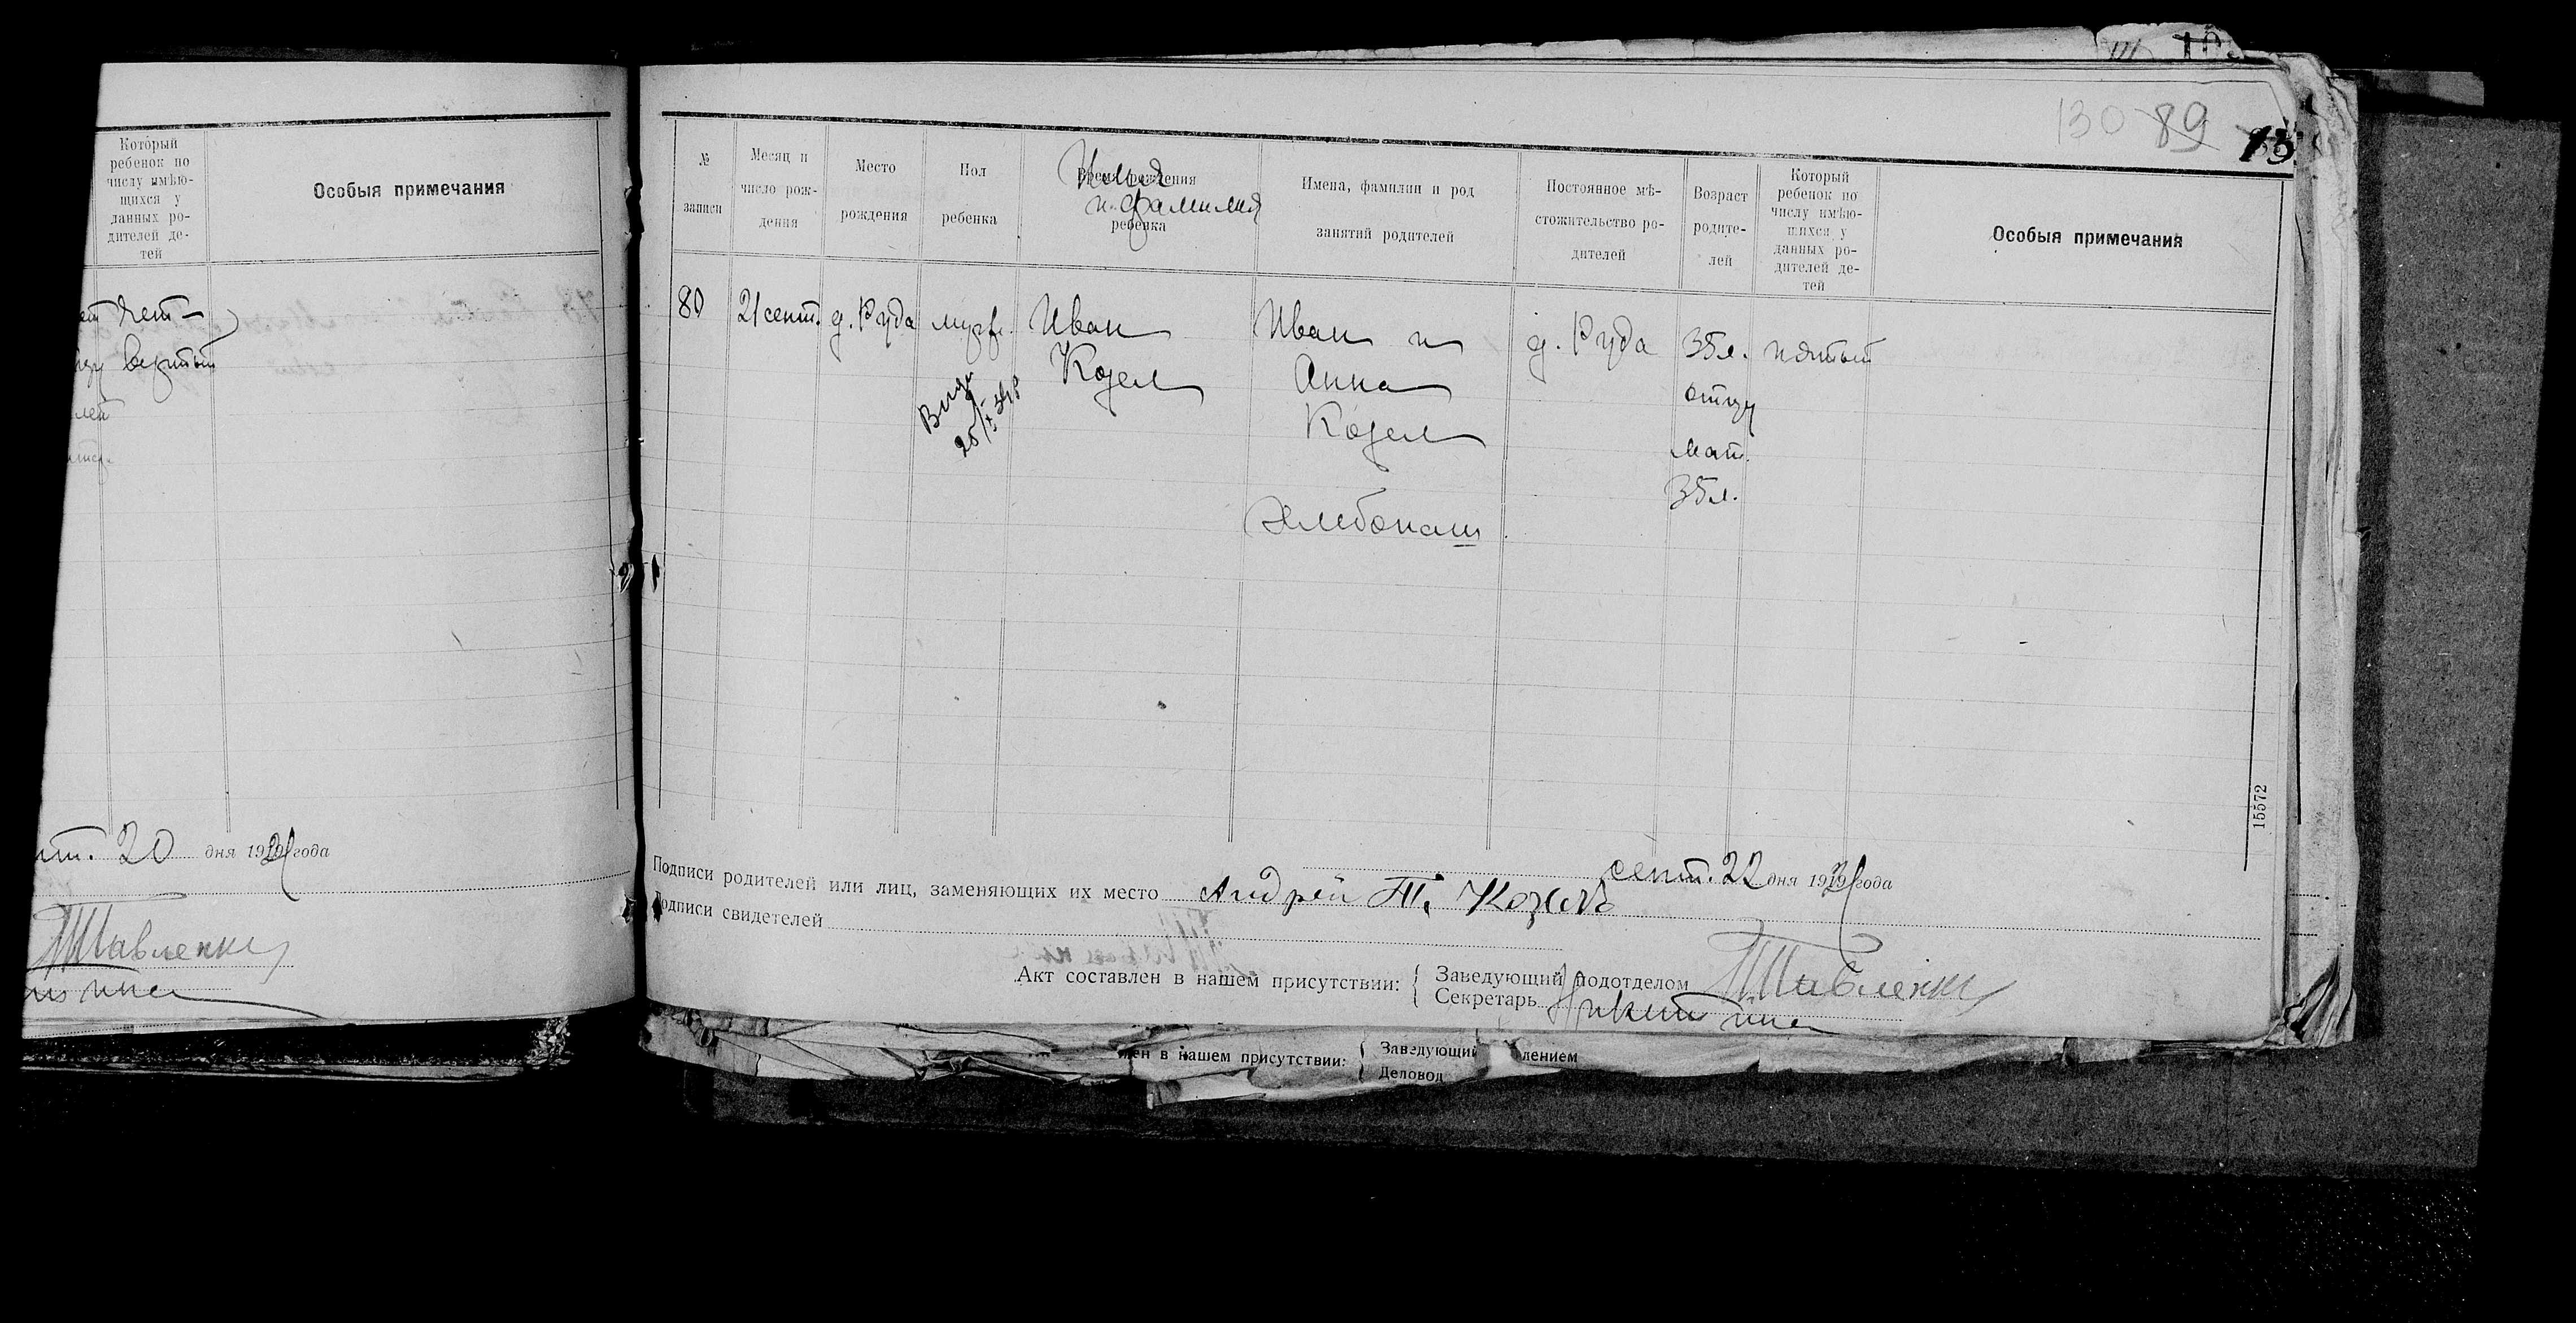 Который
ребенок по
числу имѣю-
щихся у
данных ро-
дителей де-
тей
Особыя примечания
чет-
вертый
20 дня 1921 года
Шавленки
130 89
№
записи
Месяц и
число рож-
дения
Место
рождения
Пол
ребенка
Имя
Время рождения
и фамилия
ребенка
Имена, фамилии и род
занятий родителей
Постоянное мѣ-
стожительство ро-
дителей
Возраст
родите-
лей
Который
ребенок по
числу имѣю-
щихся у
данных ро-
дителей де-
тей
Особыя примечания
80 21 сент. д. Руда муж. Иван Иван и д. Руда 35 л. пятый
Козел Анна отцу
Козел мат.
35 л.
Хлебопаш
15572
сент. 22 дня 1921 года
Подписи родителей или лиц, заменяющих их место Андрей Т. Козелъ
Подписи свидетелей
Акт составлен в нашем присутствии: { Заведующий подотделом Шавленки
Секретарь Никитина
в нашем присутствии: { Заведующий
Деловод